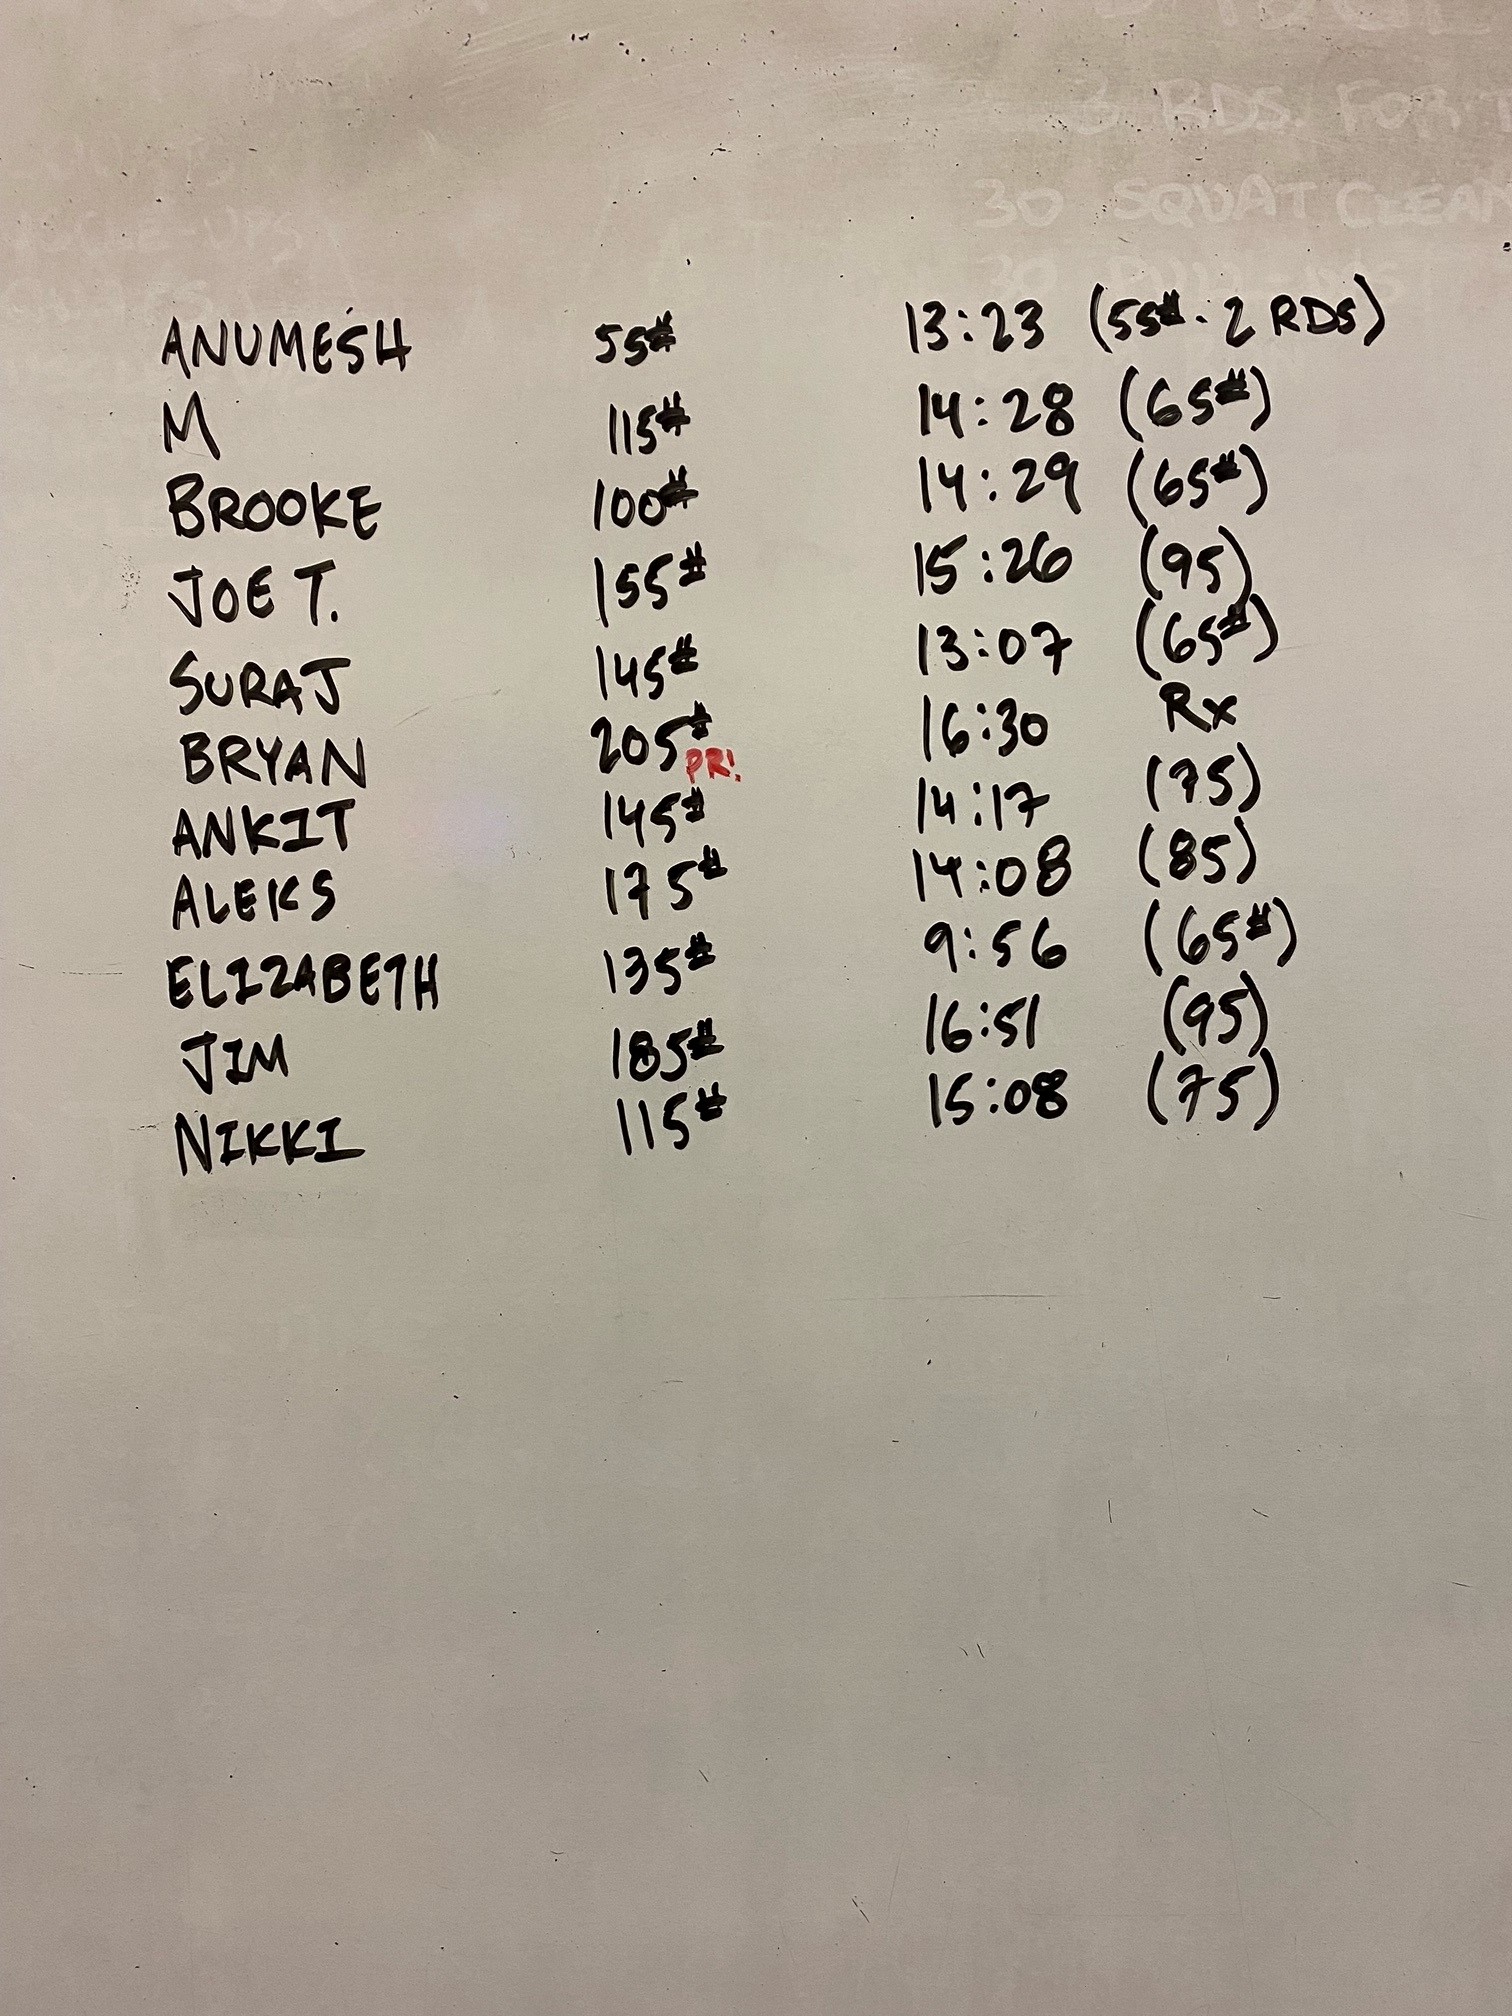 3 RDS. FOR T
30 SQUAT CLEAN
30
ANUMESH 55# 13:23 (55# . 2 RDS)
M 115# 14:28 (65#)
BROOKE 100# 14:29 (65#)
JOE T. 155# 15:26 (95)
SURAJ 145# 13:07 (65#)
BRYAN 205# PR! 16:30 Rx
ANKIT 145# 14:17 (75)
ALEKS 175# 14:08 (85)
ELIZABETH 135# 9:56 (65#)
JIM 185# 16:51 (95)
NIKKI 115# 15:08 (75)